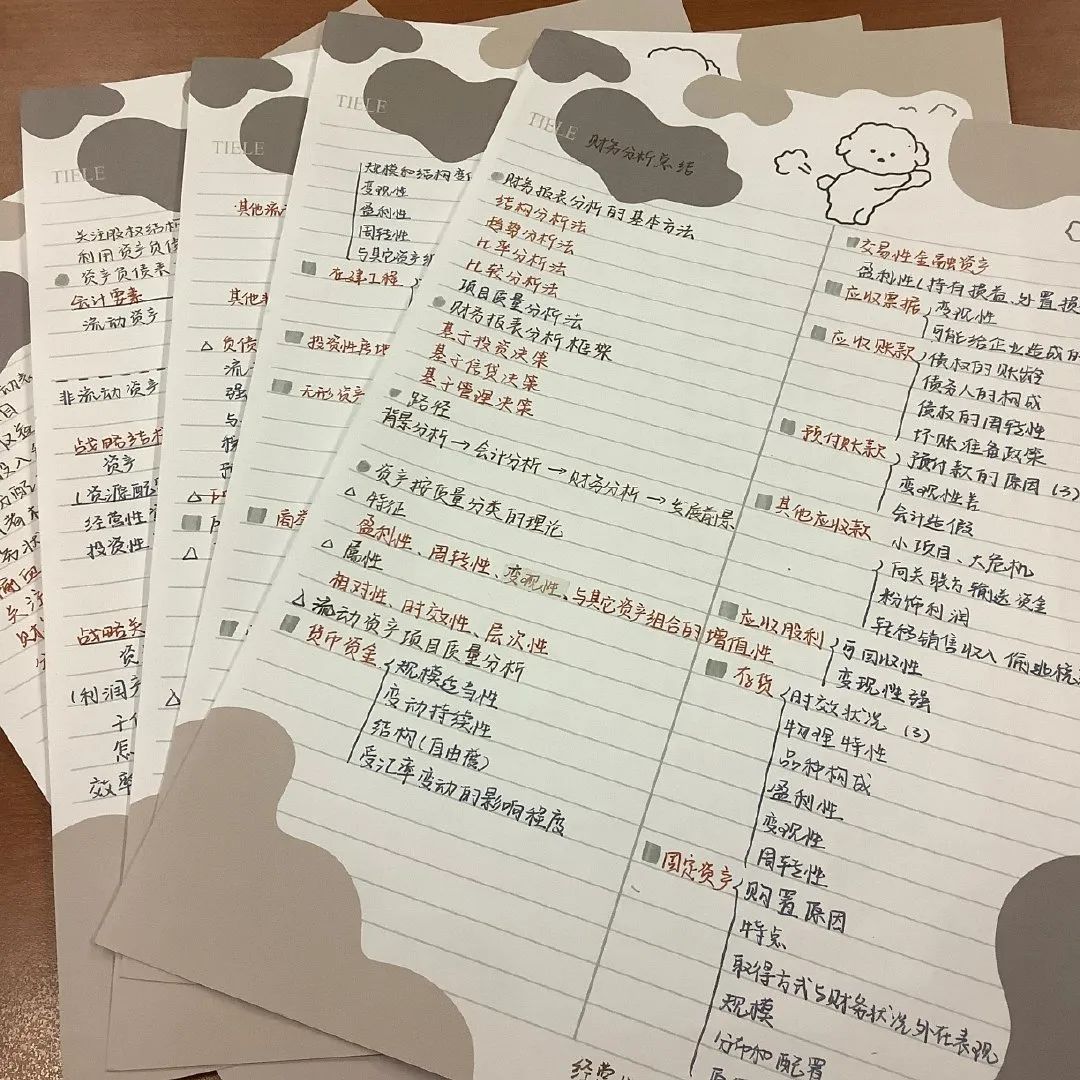 TIELE
财务分析总结
财务报表分析的基本方法
结构分析法
趋势分析法
比率分析法
比较分析法
项目质量分析法
财务报表分析框架
基于投资决策
基于信贷决策
基于管理决策
路径
背景分析→会计分析→财务分析→发展前景
资产按质量分类的理论
△ 特征
盈利性、周转性、变现性、与其它资产组合的增值性
△ 属性
相对性、时效性、层次性
△ 流动资产项目质量分析
货币资金
规模适当性
变动持续性
结构(自由度)
受汇率变动的影响程度
交易性金融资产
盈利性(持有损益、处置损
应收票据
变现性
可能给企业造成的
应收账款
债权的账龄
债务人的构成
债权的周转性
坏账准备政策
预付账款
预付款的原因(3)
变现性差
会计造假
其他应收款
小项目、大危机
向关联方输送资金
粉饰利润
转移销售收入 偷逃税
应收股利
可回收性
变现性强
存货
时效状况(3)
物理特性
品种构成
盈利性
变现性
周转性
固定资产
购置原因
特点
取得方式与财务状况外在表现
规模
分布和配置
经营
TIELE
规模和结构变
变现性
盈利性
周转性
与其它资产组
在建工程
投资性房地
无形资产
商
TIELE
其他流
其他非
△ 负债
流
强
与
TIELE
关注股权结构
利用资产负债
资产负债表
会计要素
流动资产
非流动资产
战略结构
资产
(资源配
经营性
投资性
战略关
资
(利润
效率
关注